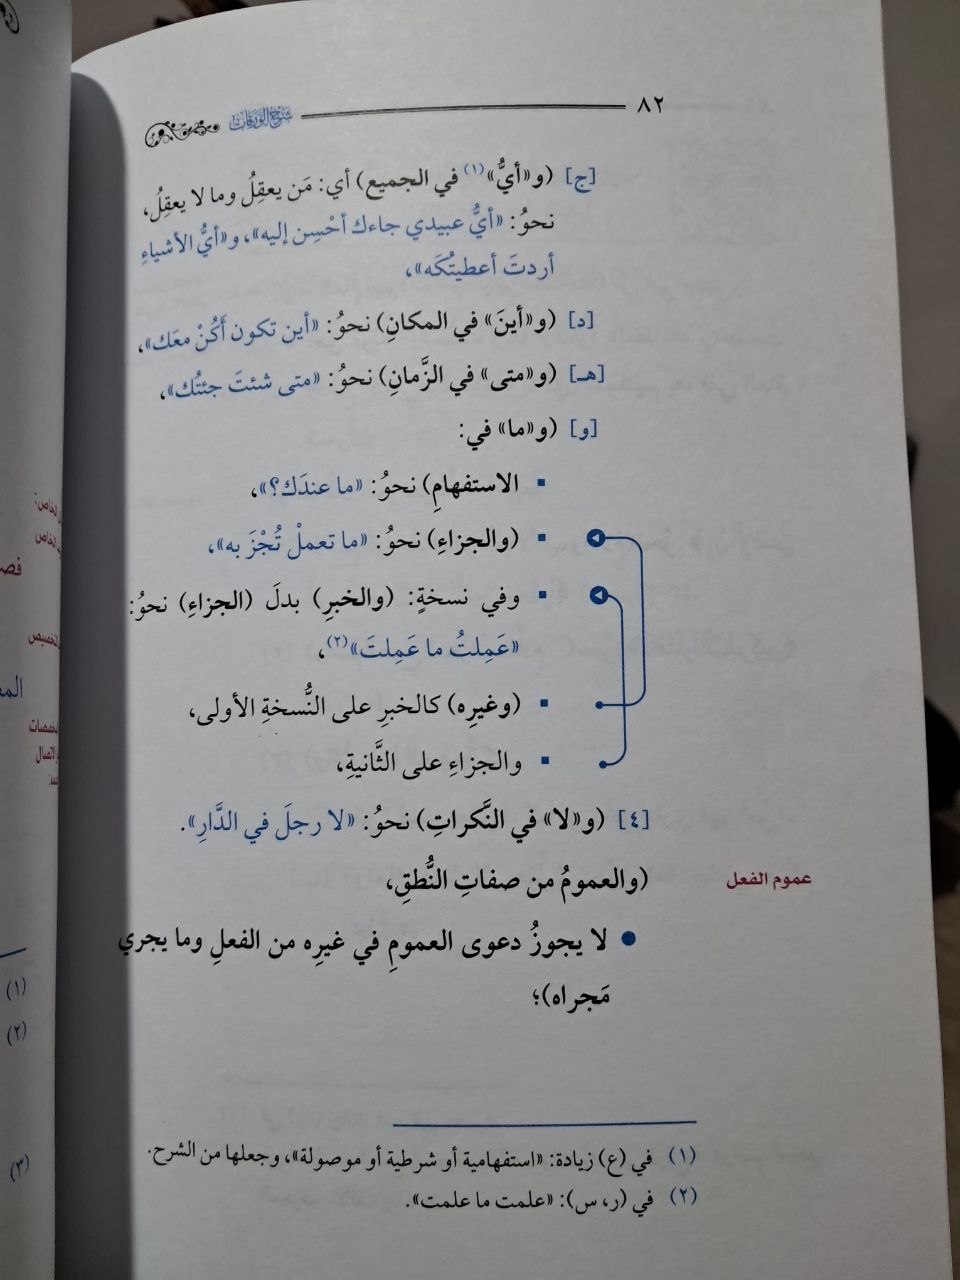 ٨٢ شرح الورقات
[ج] (و«أيُّ»(١) في الجميع) أي: مَن يعقِلُ وما لا يعقِلُ،
نحوُ: «أيُّ عبيدي جاءك أحْسِن إليه»، و«أيُّ الأشياءِ
أردتَ أعطيتُكَه»،
[د] (و«أينَ» في المكانِ) نحوُ: «أين تكون أَكُنْ معَك»،
[هـ] (و«متى» في الزَّمانِ) نحوُ: «متى شئتَ جئتُك»،
[و] (و«ما» في:
▪ الاستفهامِ) نحوُ: «ما عندَك؟»،
▪ (والجزاءِ) نحوُ: «ما تعملْ تُجْزَ به»،
▪ وفي نسخةٍ: (والخبرِ) بدلَ (الجزاءِ) نحوُ:
«عَمِلتُ ما عَمِلتَ»(٢)،
▪ (وغيرِه) كالخبرِ على النُّسخةِ الأولى،
▪ والجزاءِ على الثَّانيةِ،
[٤] (و«لا» في النَّكراتِ) نحوُ: «لا رجلَ في الدَّارِ».
عموم الفعل
(والعمومُ من صفاتِ النُّطقِ،
● لا يجوزُ دعوى العمومِ في غيرِه من الفعلِ وما يجري
مَجراه)؛
(١) في (ع) زيادة: «استفهامية أو شرطية أو موصولة»، وجعلها من الشرح.
(٢) في (ر، س): «علمت ما علمت».
(١)
(٢)
(٣)